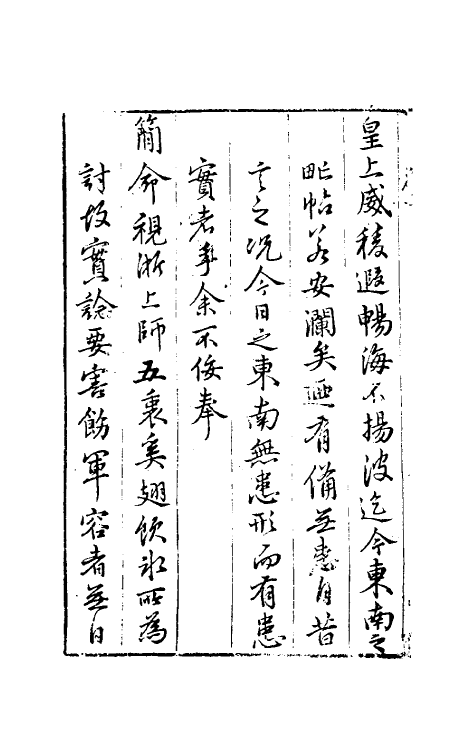 皇上威稜遐暢海不揚波迄今東南之
毗帖若安瀾矣迺有備無患自昔
言之況今日之東南無患形而有患
實者乎余不佞奉
簡命視浙上師五裏奚翅飲冰所為
討故實論要害飭軍容者無日